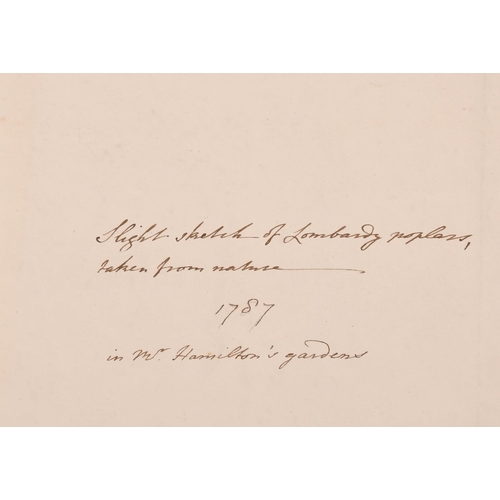 Slight sketch of Lombardy poplars,
taken from nature
1787
in Mr. Hamilton's gardens